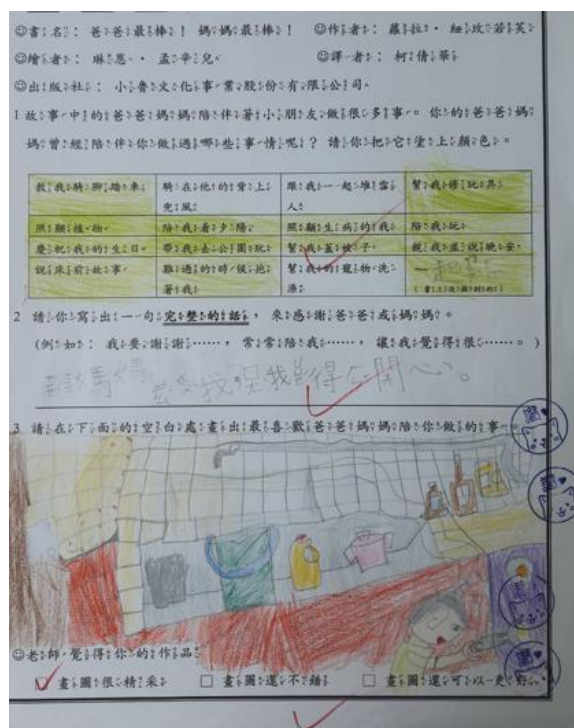 ☺書名：爸爸最棒！媽媽最棒！ ☺作者：蘿拉．紐玫若芙
☺繪者：琳恩．孟辛兒 ☺譯者：柯倩華
☺出版社：小魯文化事業股份有限公司
1 故事中的爸爸媽媽陪伴著小朋友做很多事。你的爸爸媽
媽曾經陪伴你做過哪些事情呢？請你把它塗上顏色。
教我騎腳踏車 騎在他的背上兜風 跟我一起堆雪人 幫我修玩具
照顧植物 陪我看夕陽 照顧生病的我 陪我玩
慶祝我的生日 帶我去公園玩 幫我蓋被子 親我並說晚安
說床前故事 難過的時候抱著我 幫我的寵物洗澡 一起
2 請你寫出一句完整的話，來感謝爸爸或媽媽。
(例如：我要謝謝……，常常陪我……，讓我覺得很……。)
媽媽 我 我覺得 開心。
3 請在下面的空白處畫出最喜歡爸爸媽媽陪你做的事
☺老師覺得你的作品
☐ 畫圖很精采 ☐ 畫圖還不錯 ☐ 畫圖還可以更好